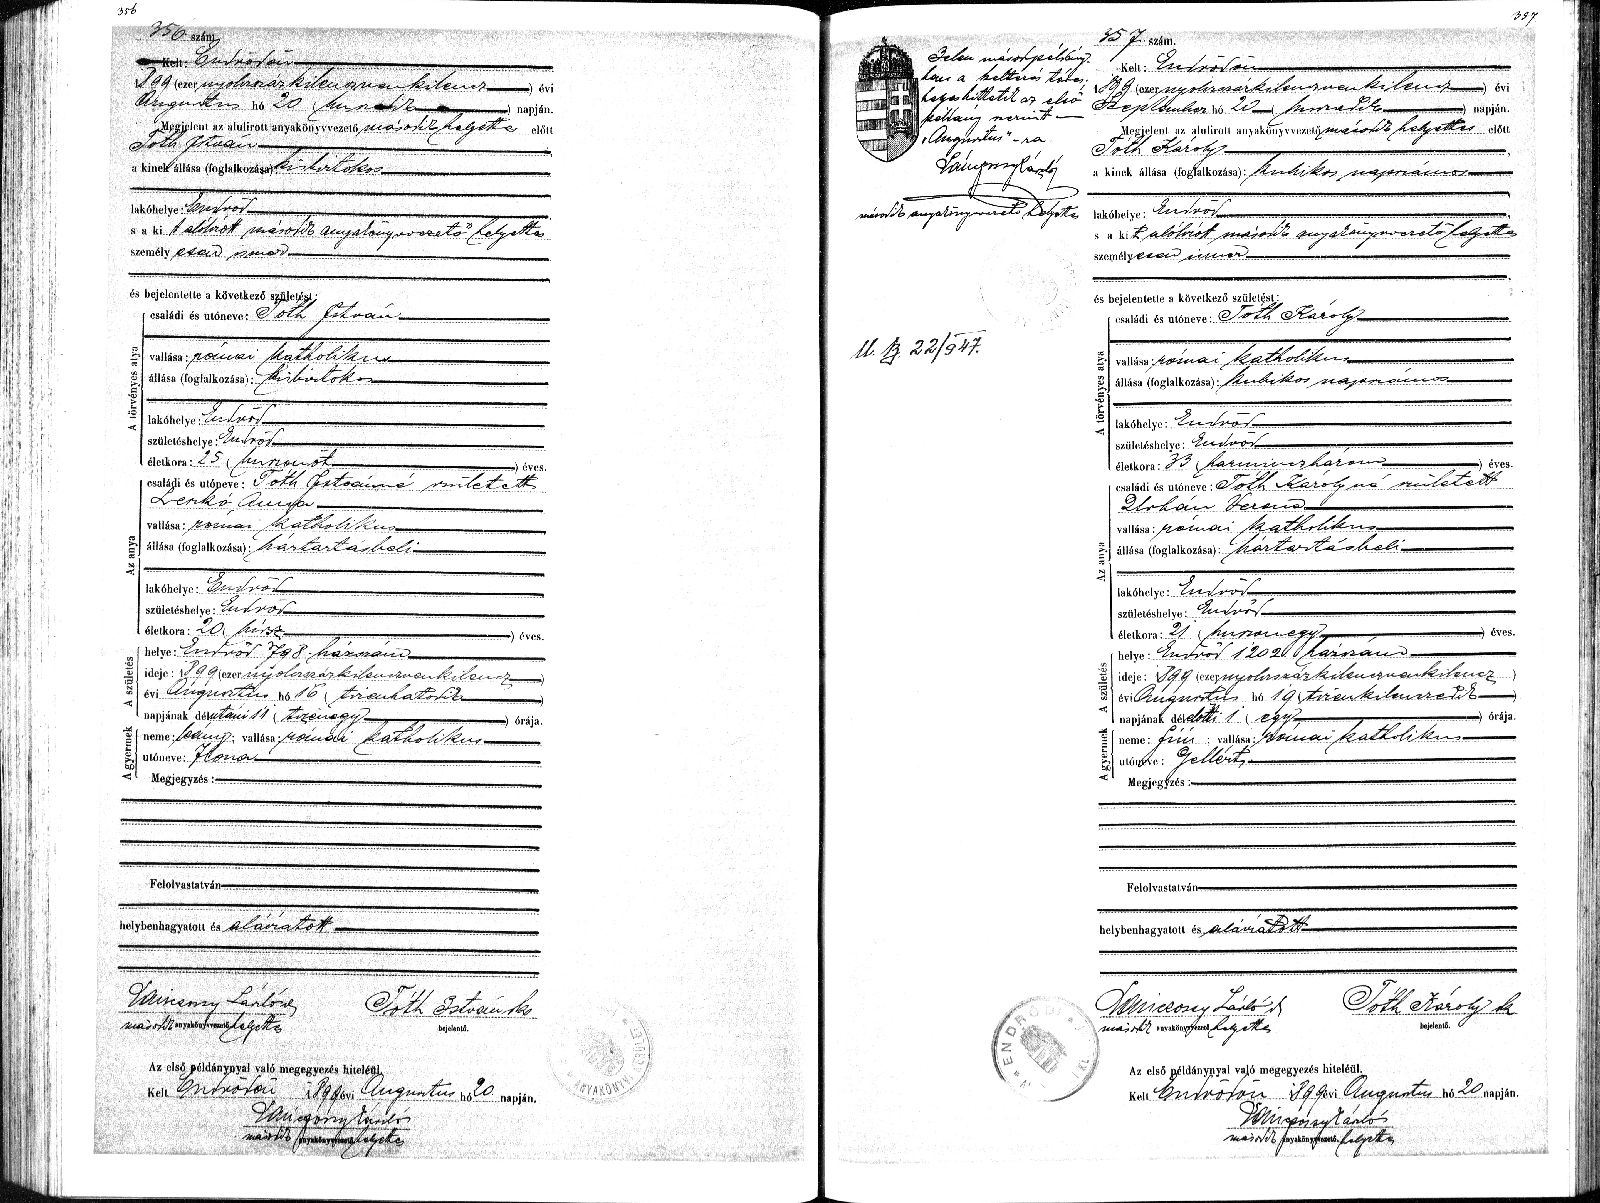 356
356 szám.
Kelt: Endrődön
1899 (ezernyolcszázkilenczvenkilencz) évi
Augusztus hó 20 (huszadik) napján.
Megjelent az alulirott anyakönyvvezető második helyettes előtt
Tóth István
a kinek állása (foglalkozása): kisbirtokos
lakóhelye: Endrőd
s a kit alólirott második anyakönyvvezető helyettes
személyesen ismer
és bejelentette a következő születést:
A törvényes atya
családi és utóneve: Tóth István
vallása: római katholikus
állása (foglalkozása): kisbirtokos
lakóhelye: Endrőd
születéshelye: Endrőd
életkora: 25 (huszonöt) éves.
Az anya
családi és utóneve: Tóth Istvánné született
Anna
vallása: római katholikus
állása (foglalkozása): háztartásbeli
lakóhelye: Endrőd
születéshelye: Endrőd
életkora: 20 (húsz) éves.
A születés
helye: Endrőd 798 házszám
ideje: 1899 (ezernyolcszázkilenczvenkilencz)
évi Augusztus hó 16 (tizenhatodik)
napjának délutáni 11 (tizenegy) órája.
A gyermek
neme: leány; vallása: római katholikus
utóneve: Ilona
Megjegyzés:
Felolvastatván
helybenhagyatott és aláíratott
László
második anyakönyvvezető helyettes
Tóth István sk
bejelentő.
Az első példánynyal való megegyezés hiteléül.
Kelt Endrődön 1899 évi Augusztus hó 20 napján.
László
második anyakönyvvezető helyettes
357
357 szám.
Jelen másodpéldány-
ban a keltezés
első
példány szerint
"Augusztus"-ra
László
második anyakönyvvezető helyettes
22/947.
Kelt: Endrődön
1899 (ezernyolcszázkilenczvenkilencz) évi
Szeptember hó 20 (huszadik) napján.
Megjelent az alulirott anyakönyvvezető második helyettes előtt
Tóth Károly
a kinek állása (foglalkozása): kubikos napszámos
lakóhelye: Endrőd
s a kit alólirott második anyakönyvvezető helyettes
személyesen ismer
és bejelentette a következő születést:
A törvényes atya
családi és utóneve: Tóth Károly
vallása: római katholikus
állása (foglalkozása): kubikos napszámos
lakóhelye: Endrőd
születéshelye: Endrőd
életkora: 33 (harminczhárom) éves.
Az anya
családi és utóneve: Tóth Károlyné született
Uhrin Verona
vallása: római katholikus
állása (foglalkozása): háztartásbeli
lakóhelye: Endrőd
születéshelye: Endrőd
életkora: 21 (huszonegy) éves.
A születés
helye: Endrőd 1202 házszám
ideje: 1899 (ezernyolcszázkilenczvenkilencz)
évi Augusztus hó 19 (tizenkilenczedik)
napjának délelőtti 1 (egy) órája.
A gyermek
neme: fiú; vallása: római katholikus
utóneve: Gellért
Megjegyzés:
Felolvastatván
helybenhagyatott és aláíratott
László
második anyakönyvvezető helyettes
Tóth Károly sk
bejelentő.
ENDRŐDI
Az első példánynyal való megegyezés hiteléül.
Kelt Endrődön 1899 évi Augusztus hó 20 napján.
László
második anyakönyvvezető helyettes